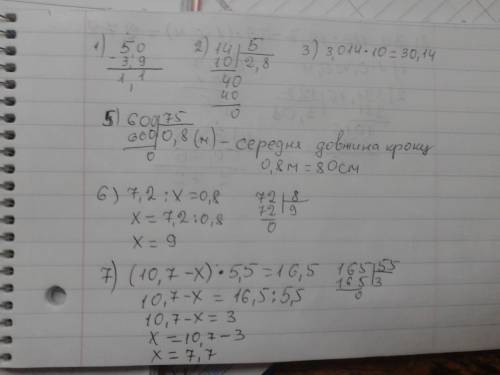 1) 50
- 3,9
1,1
2) 14 | 5
10 | 2,8
40
40
0
3) 3,014 · 10 = 30,14
5) 600 | 75
600 | 0,8 (м) – середня довжина кроку
0
0,8м = 80см
6) 7,2 : х = 0,8
х = 7,2 : 0,8
х = 9
72 | 8
72 | 9
0
7) (10,7 – х) · 5,5 = 16,5
10,7 – х = 16,5 : 5,5
10,7 – х = 3
х = 10,7 – 3
х = 7,7
165 | 55
165 | 3
0